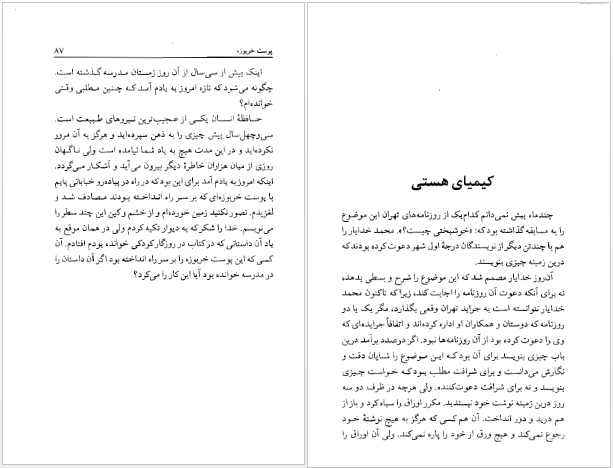 پوست خربوزه ۸۷
اینک بیش از سی‌سال از آن روز زمستان مدرسه گذشته است.
چگونه می‌شود که تازه امروز به یادم آمد که چنین مطلبی وقتی
خوانده‌ام؟
حافظهٔ انسان یکی از عجیب‌ترین نیروهای طبیعت است.
سی‌وچهل‌سال پیش چیزی را به ذهن سپرده‌اید و هرگز به آن مرور
نکرده‌اید و در این مدت هیچ به یاد شما نیامده است ولی ناگهان
روزی از میان هزاران خاطرهٔ دیگر بیرون می‌آید و آشکار می‌گردد.
اینکه امروز به یادم آمد برای این بود که در راه در پیاده‌رو خیابانی پایم
با پوست خربوزه‌ای که بر سر راه انداخته بودند مصادف شد و
لغزیدم. تصور نکنید زمین خورده‌ام و از خشم و کین این چند سطر را
می‌نویسم. خدا را شکر که به دیوار تکیه کردم ولی در همان موقع به
یاد آن داستانی که در کتاب در روزگار کودکی خوانده بودم افتادم. آن
کسی که این پوست خربوزه را بر سر راه انداخته بود اگر آن داستان را
در مدرسه خوانده بود آیا این کار را می‌کرد؟
کیمیای هستی
چندماه پیش نمی‌دانم کدام‌یک از روزنامه‌های تهران این موضوع
را به مسابقه گذاشته بود که: «خوشبختی چیست؟». محمد خدایار را
هم با چندتن دیگر از نویسندگان درجهٔ اول شهر دعوت کرده بودند که
درین زمینه چیزی بنویسند.
آن‌روز خدایار مصمم شد که این موضوع را شرح و بسطی بدهد،
نه برای آنکه دعوت آن روزنامه را اجابت کند، زیرا که تاکنون محمد
خدایار نتوانسته است به جراید تهران وقعی بگذارد، مگر یک یا دو
روزنامه که دوستان و همکاران او اداره کرده‌اند و اتفاقاً جرایده‌ای که
وی را دعوت کرده بود از آن روزنامه‌ها نبود. اگر درصدد برآمد درین
باب چیزی بنویسد برای آن بود که این موضوع را شایان دقت و
نگارش می‌دانست و برای شرافت مطلب بود که خواست چیزی
بنویسد و نه برای شرافت دعوت‌کننده. ولی هرچه در ظرف دو سه
روز درین زمینه نوشت خود نپسندید. مکرر اوراق را سیاه کرد و باز از
هم درید و دور انداخت. آن هم کسی که هرگز به هیچ نوشتهٔ خود
رجوع نمی‌کند و هیچ ورق از خود را پاره نمی‌کند. ولی آن اوراق را